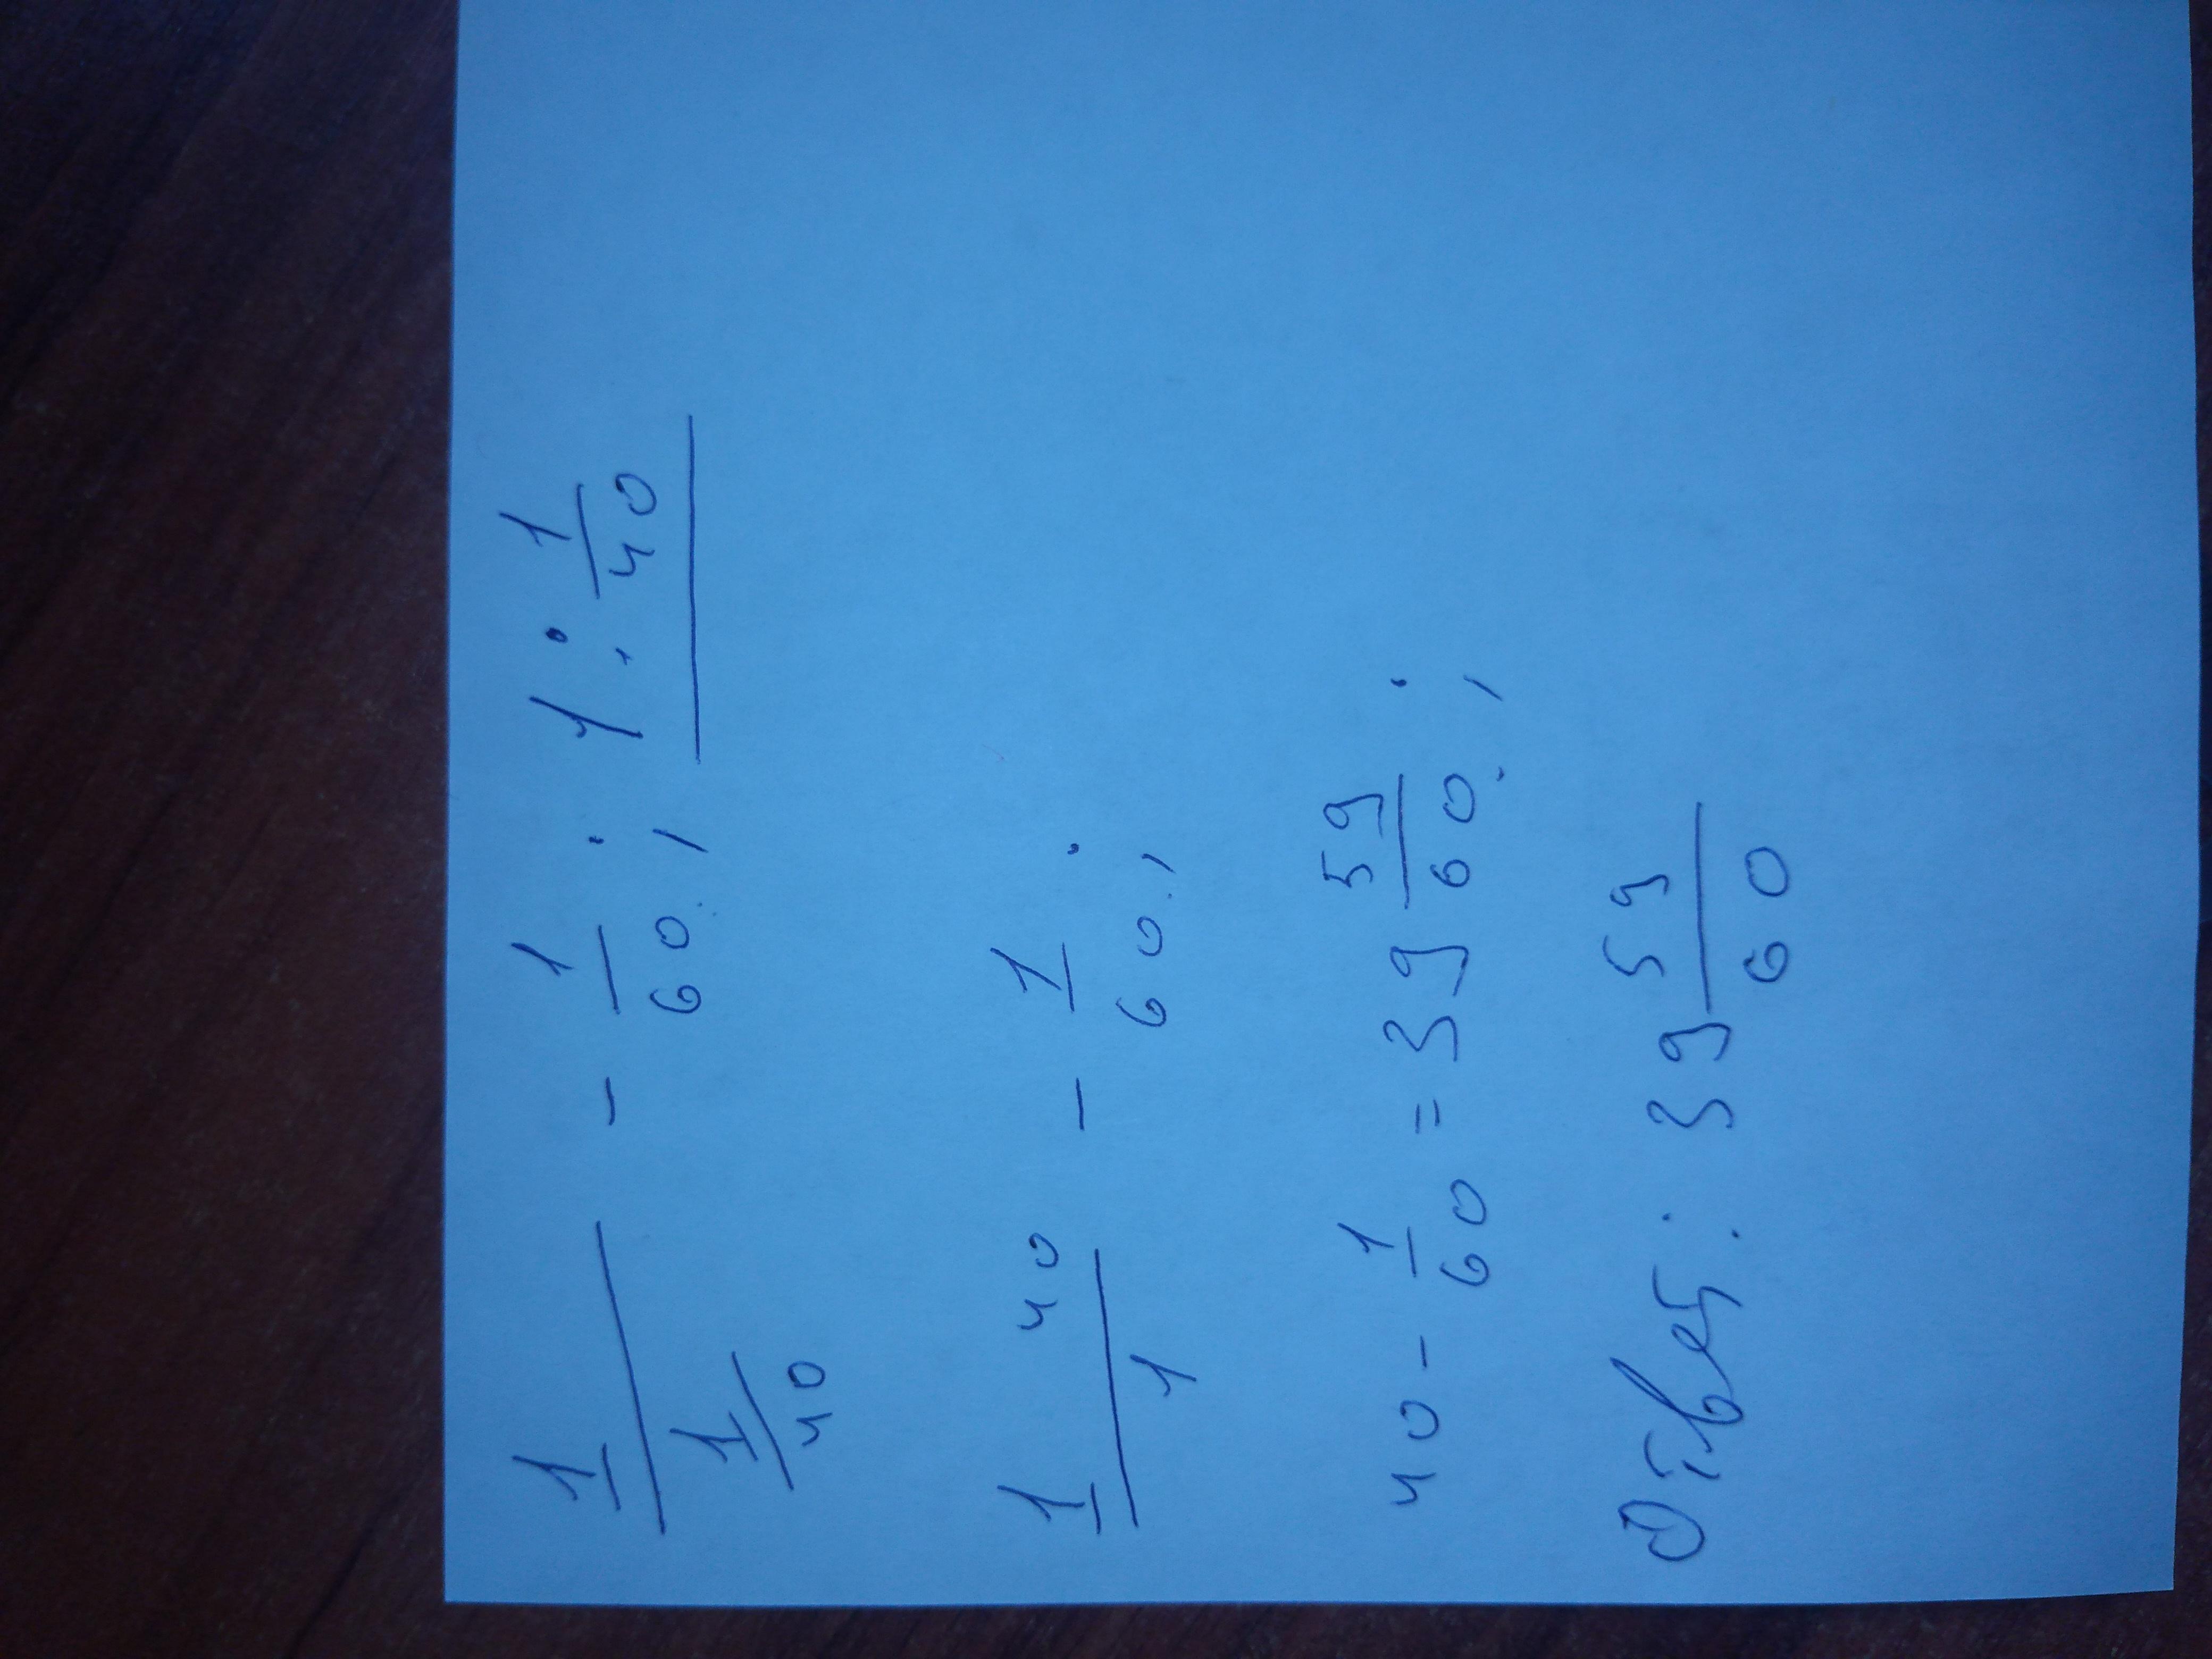 1/(1/40) - 1/60; 1 : 1/40
1 40/1 - 1/60;
40 - 1/60 = 39 59/60;
Ответ: 39 59/60